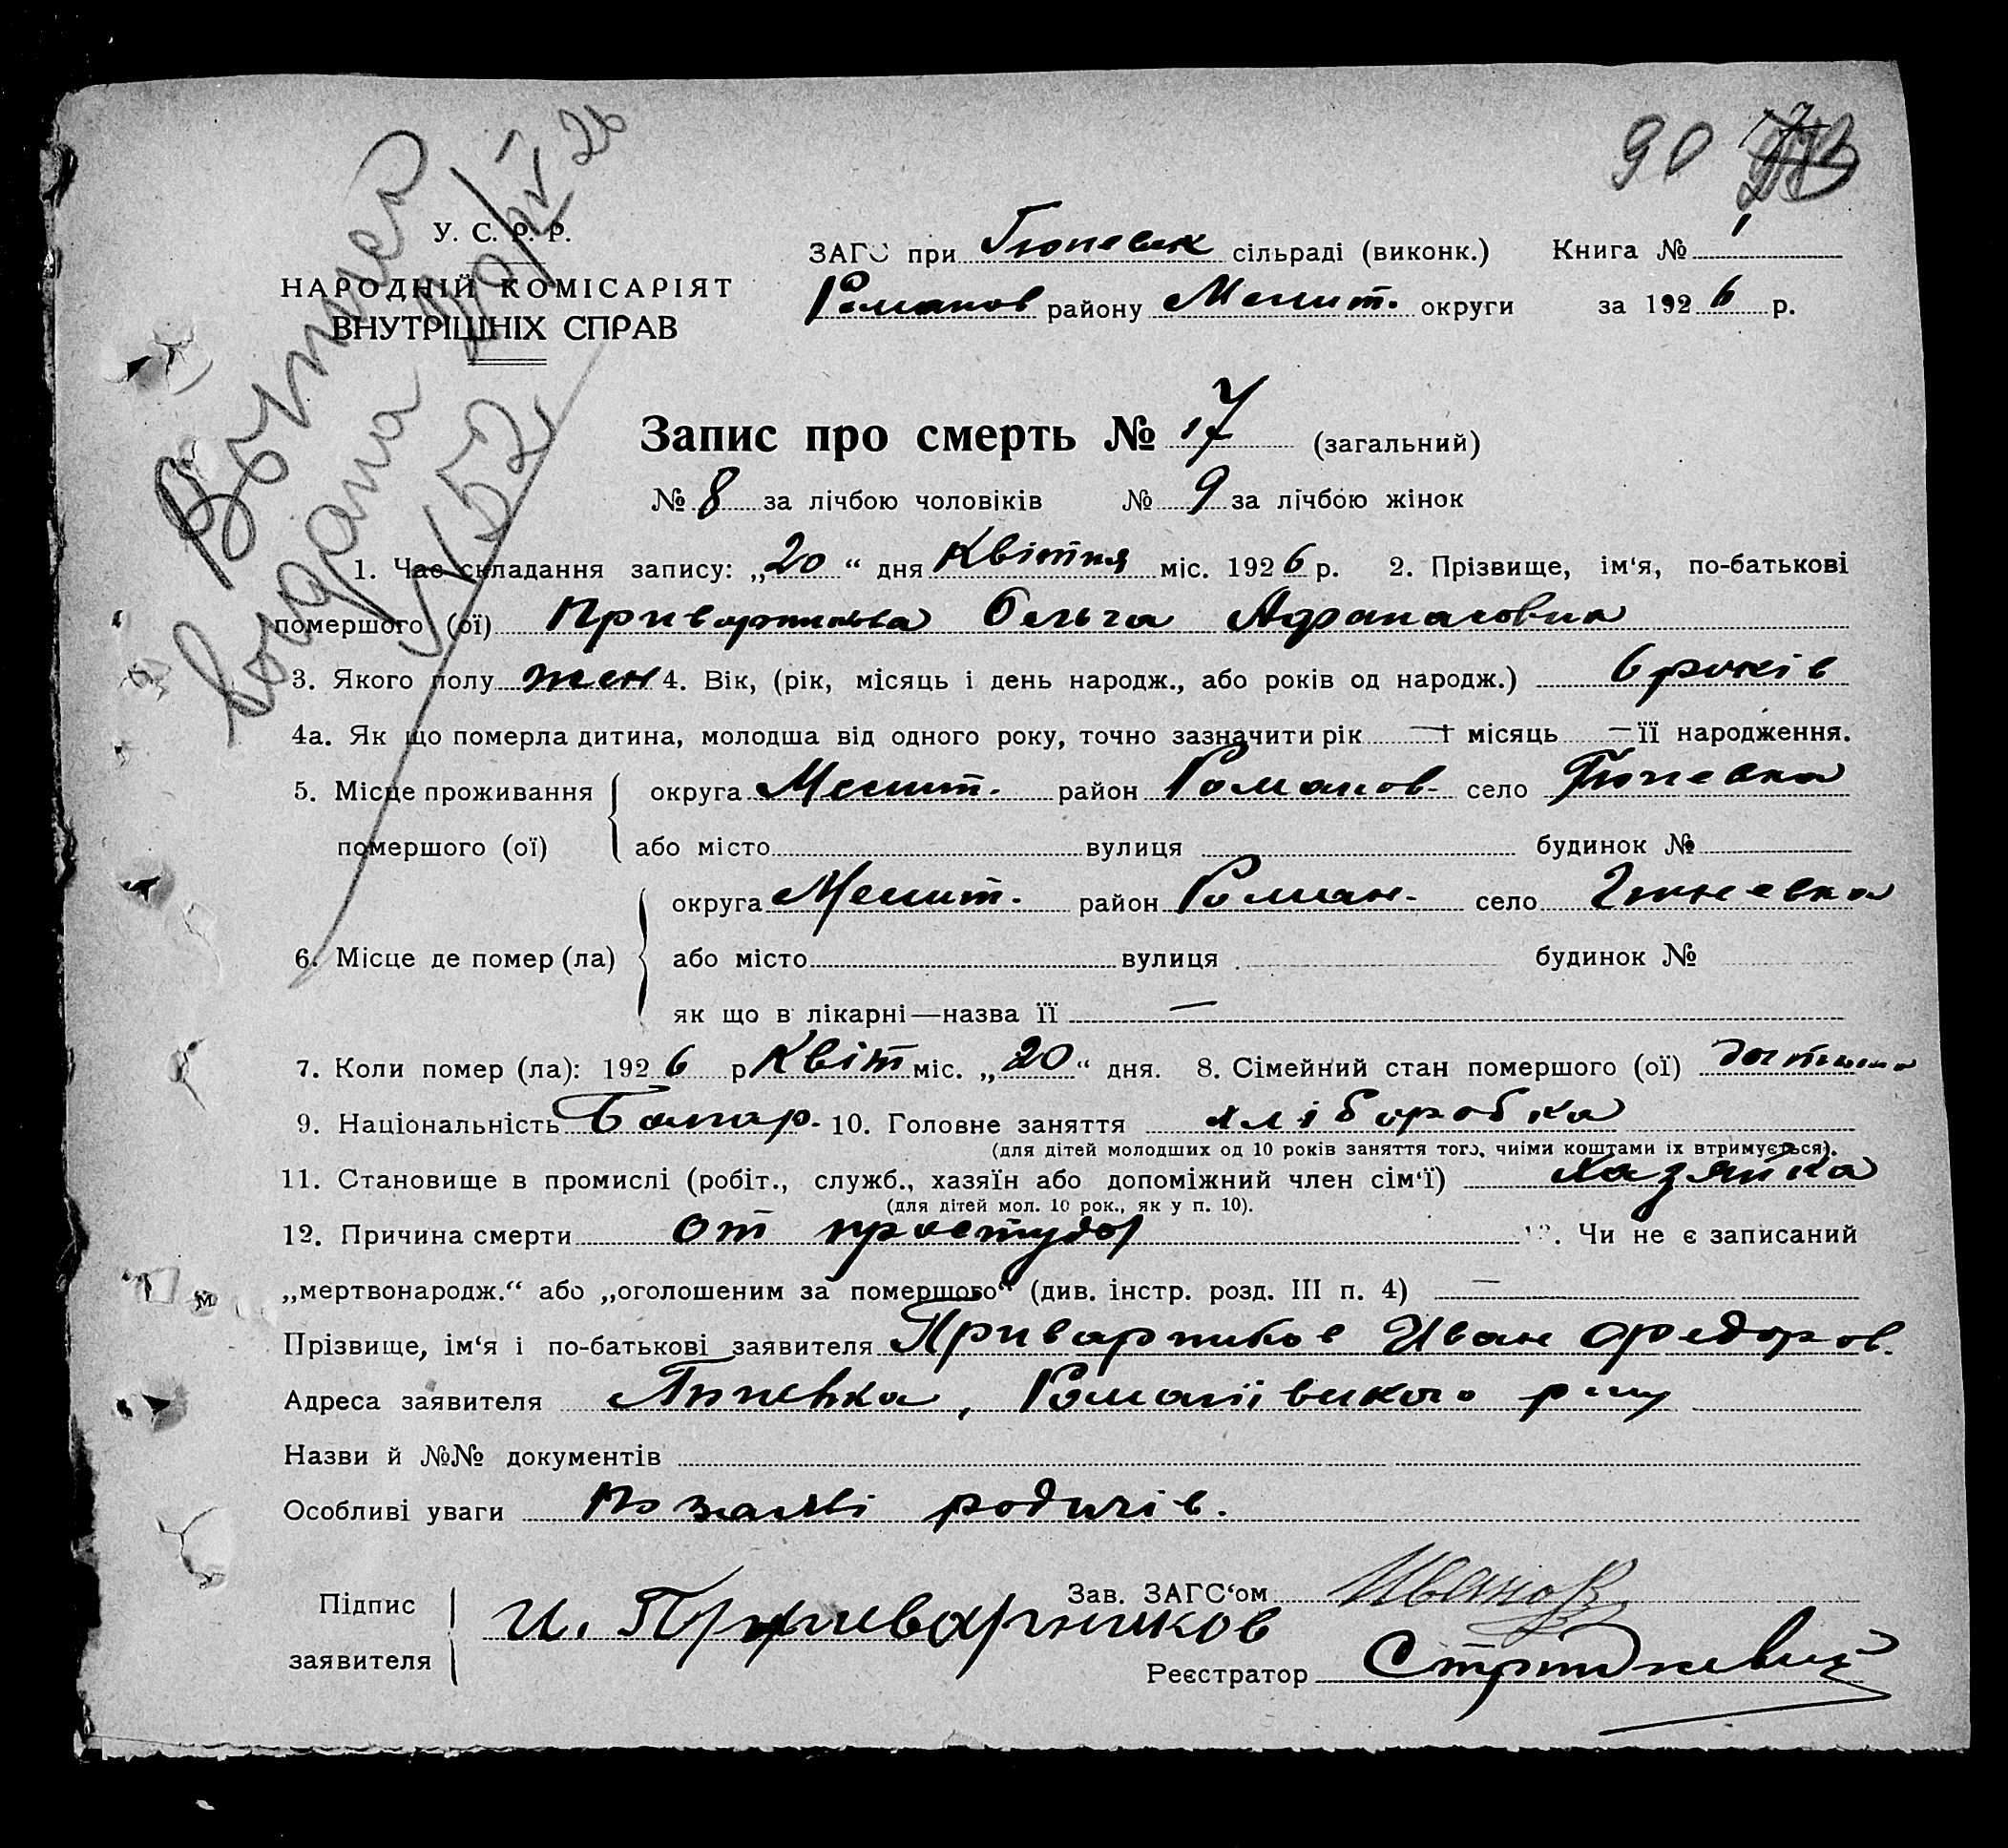 90
У. С. Р. Р.
НАРОДНІЙ КОМІСАРІЯТ
ВНУТРІШНІХ СПРАВ
ЗАГС при Гюневск сільраді (виконк.) Книга № 1
Романов району Мелит. округи за 1926 р.
Запис про смерть № 17 (загальний)
№ 8 за лічбою чоловіків № 9 за лічбою жінок
1. Час складання запису: „20“ дня Квітня міс. 1926 р. 2. Прізвище, ім‘я, по-батькові
помершого (ої) Приварникова Ольга Афанасовна
3. Якого полу жен 4. Вік, (рік, місяць і день народж., або років од народж.) 6 років
4а. Як що померла дитина, молодша від одного року, точно зазначити рік — місяць — її народження.
5. Місце проживання округа Мелит. район Романов- село Гюневка
помершого (ої) або місто вулиця будинок №
округа Мелит. район Роман- село Гюневка
6. Місце де помер (ла) або місто вулиця будинок №
як що в лікарні—назва її —
7. Коли помер (ла): 1926 р Квіт міс. „20“ дня. 8. Сімейний стан помершого (ої)
9. Національність Болгар- 10. Головне заняття хліборобка
(для дітей молодших од 10 років заняття того, чиїми коштами їх втримується).
11. Становище в промислі (робіт., служб., хазяїн або допоміжний член сім‘ї) хазяйка
(для дітей мол. 10 рок., як у п. 10).
12. Причина смерти от простуды 13. Чи не є записаний
„мертвонародж.“ або „оголошеним за помершого“ (див. інстр. розд. III п. 4) —
Прізвище, ім‘я і по-батькові заявителя Приварников Иван Федоров.
Адреса заявителя Гюневка, Романівського р-ну
Назви й №№ документів
Особливі уваги По заяві родичів.
Підпис Зав. ЗАГС‘ом Иванов
заявителя И. Приварников
Реєстратор